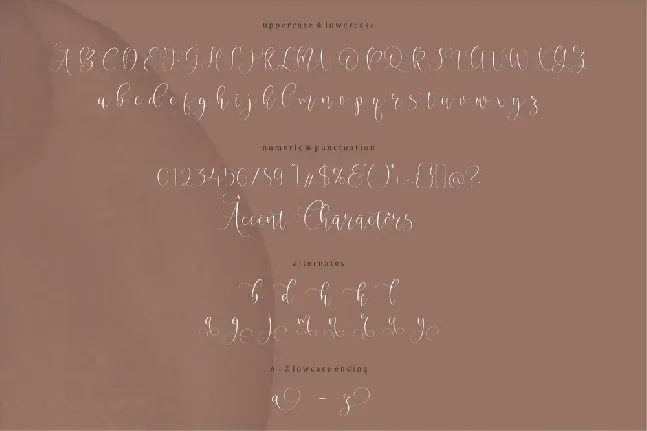 uppercase & lowercase
A B C D E F G H I J K L M N O P Q R S T U V W X Y Z
a b c d e f g h i j k l m n o p q r s t u v w x y z
numeric & punctuation
0 1 2 3 4 5 6 7 8 9 ! # $ % & ( ) * , - { } [ ] @ ?
Accent Characters
alternates
b d h k l
a g j m n r u y
A - Z lowcase ending
a - z